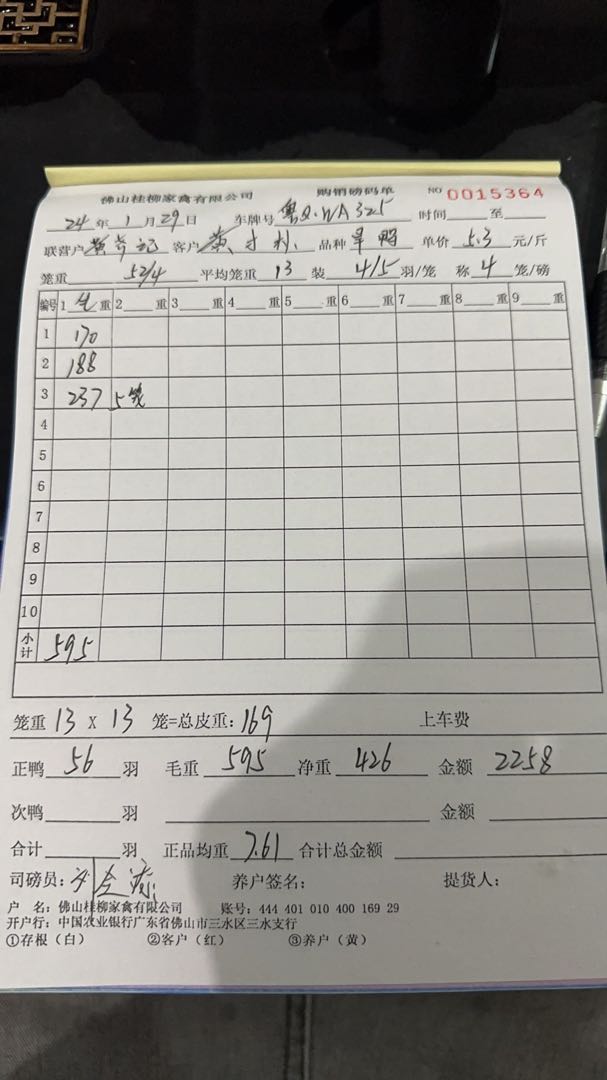 佛山桂柳家禽有限公司 购销磅码单 NO 0015364
24 年 1 月 29 日 车牌号 粤Q·WA325 时间 至
联营户 客户 黄 品种 旱鸭 单价 5.3 元/斤
笼重 52/4 平均笼重 13 装 4/5 羽/笼 称 4 笼/磅
编号 1 毛 重 2 重 3 重 4 重 5 重 6 重 7 重 8 重 9 重
1 170
2 188
3 237 5笼
4
5
6
7
8
9
10
小计 595
笼重 13 X 13 笼=总皮重: 169 上车费
正鸭 56 羽 毛重 595 净重 426 金额 2258
次鸭 羽 金额
合计 羽 正品均重 7.61 合计总金额
司磅员: 养户签名: 提货人:
户 名: 佛山桂柳家禽有限公司 账号: 444 401 010 400 169 29
开户行: 中国农业银行广东省佛山市三水区三水支行
①存根(白) ②客户(红) ③养户(黄)